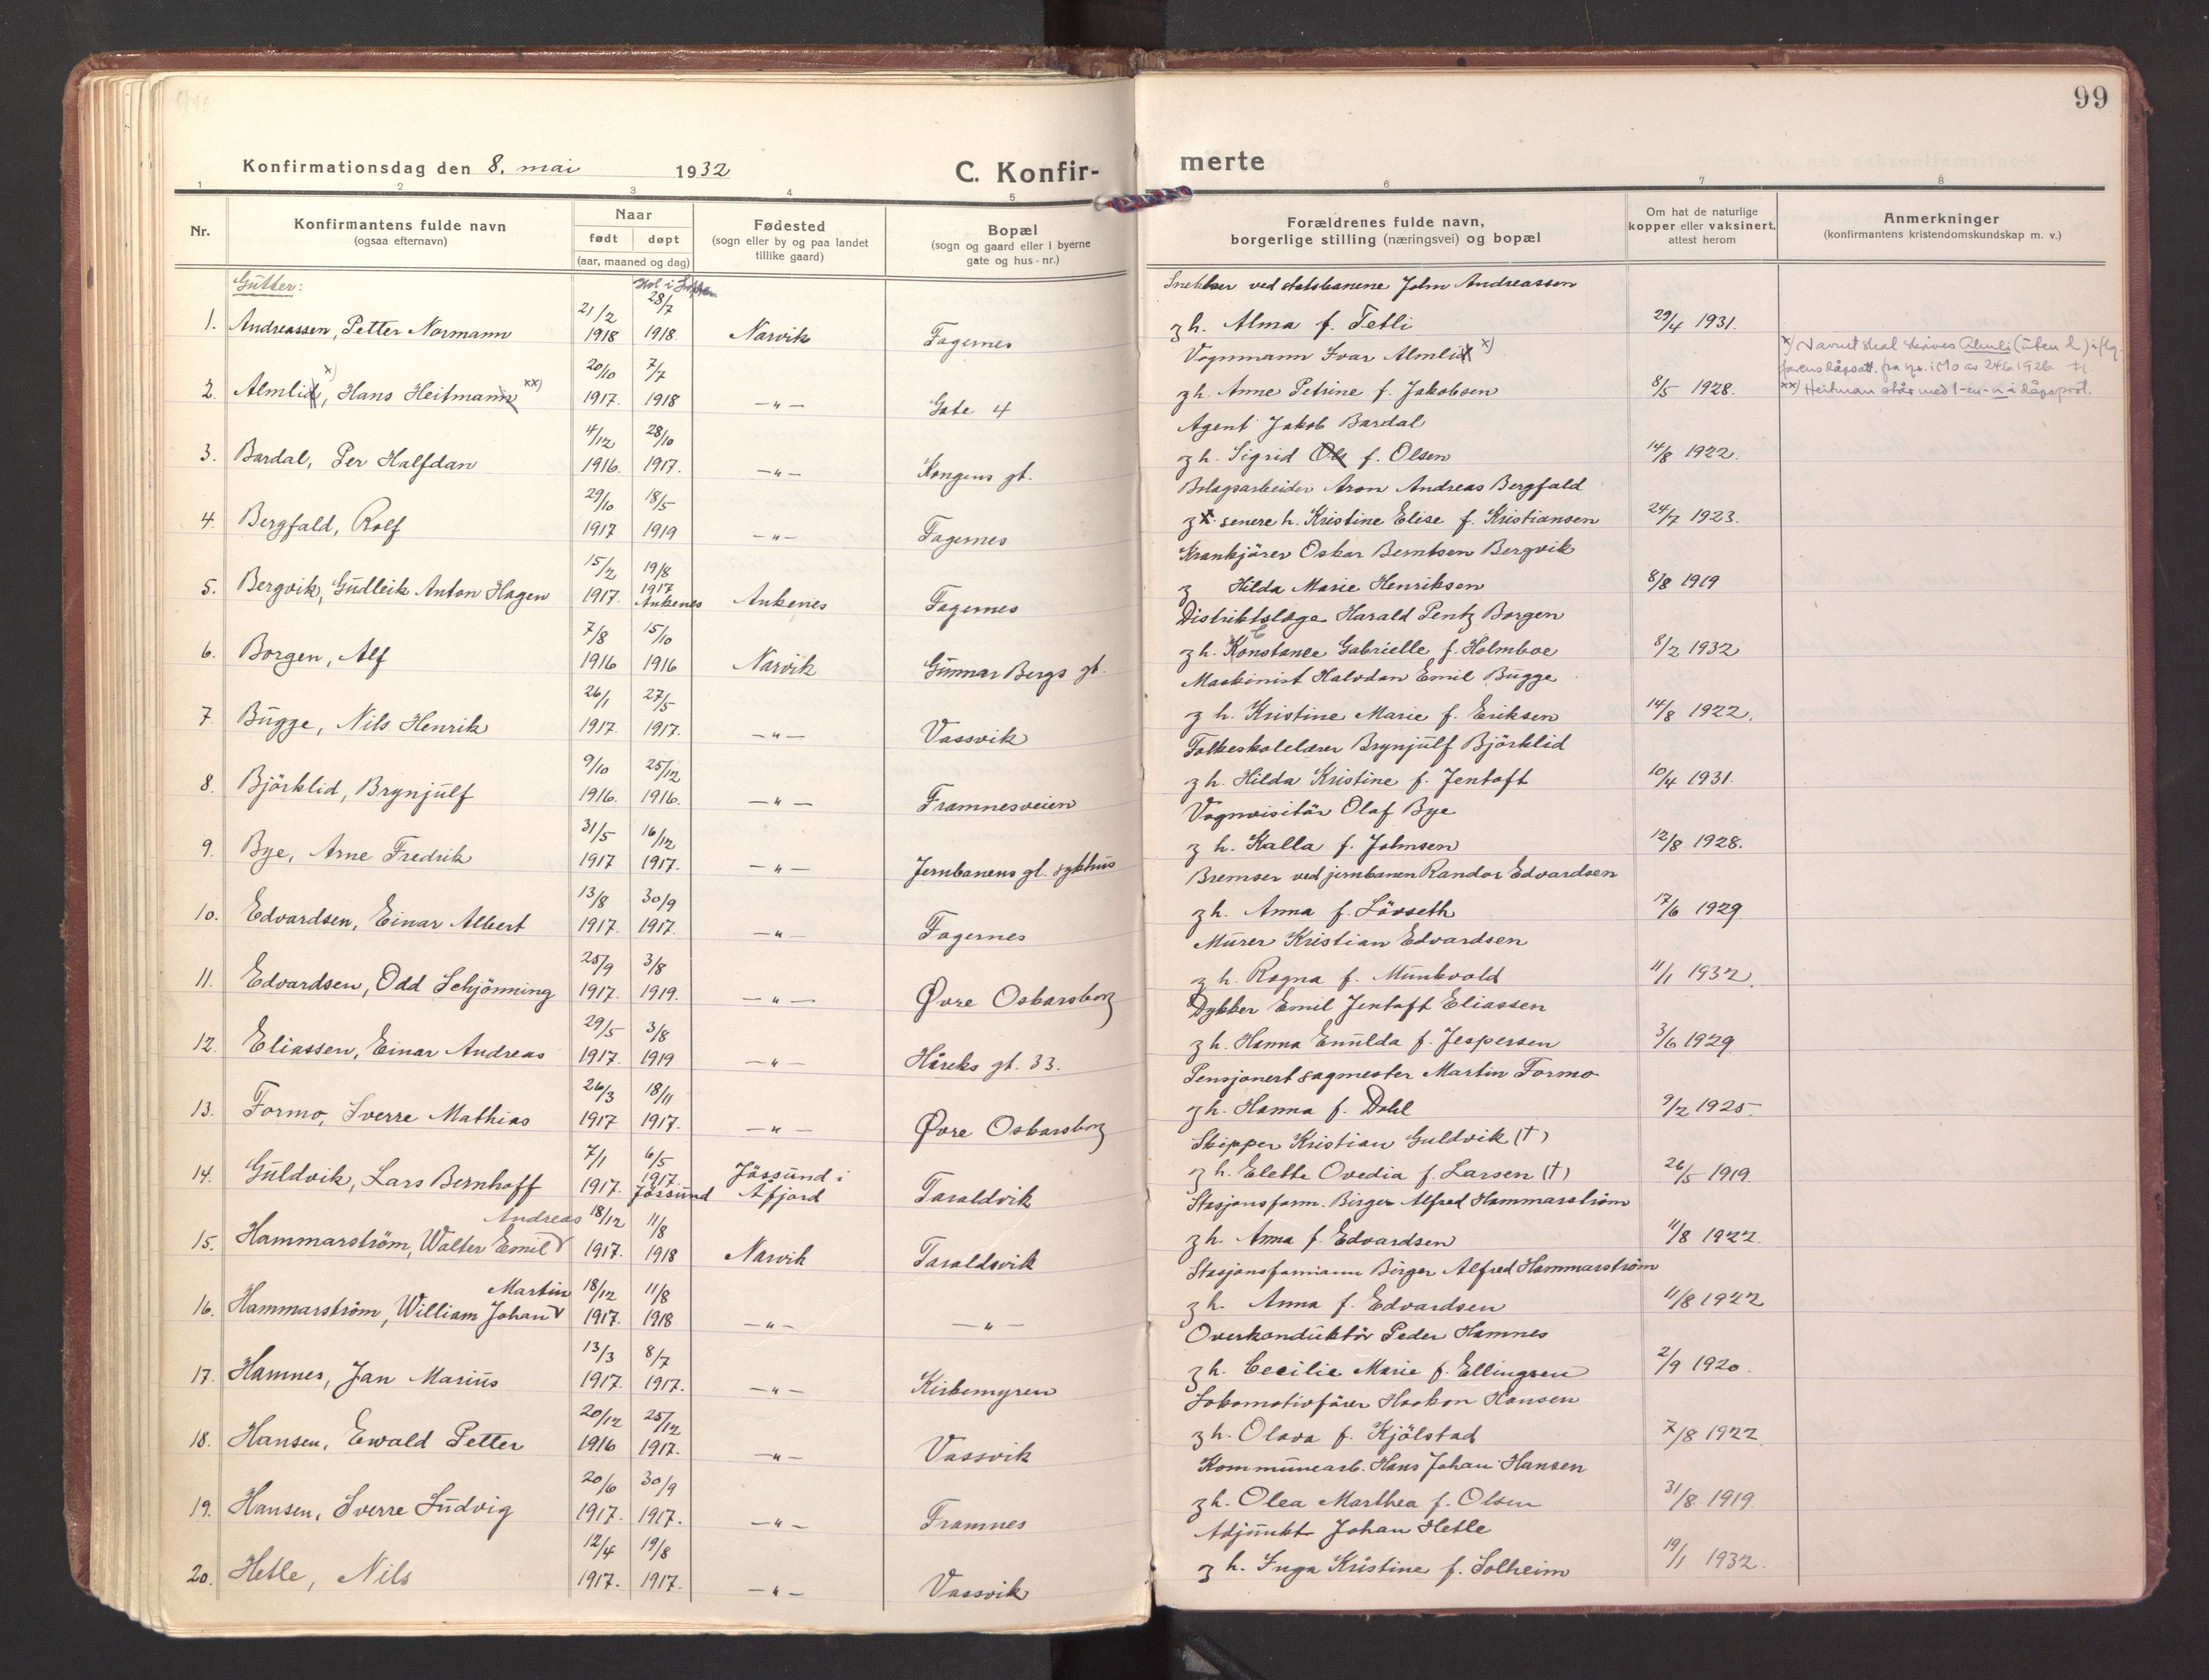 99
Konfirmationsdag den 8. mai 1932
C. Konfir-
merte
1 2 3 4 5 6 7 8
Nr.
Konfirmantens fulde navn
(ogsaa efternavn)
Naar
født døpt
(aar, maaned og dag)
Fødested
(sogn eller by og paa landet
tillike gaard)
Bopæl
(sogn og gaard eller i byerne
gate og hus-nr.)
Forældrenes fulde navn,
borgerlige stilling (næringsvei) og bopæl
Om hat de naturlige
kopper eller vaksinert,
attest herom
Anmerkninger
(konfirmantens kristendomskundskap m. v.)
Gutter:
Snekker ved statsbanene John Andreassen
1. Andreassen, Petter Normann 21/2 1918 28/7 1918. Narvik Fagernes
g h. Alma f. Tetli 29/4 1931.
Vognmann Ivar Almlid x)
2. Almlid x), Hans Heitmann xx) 20/10 1917. 7/7 1918 —„— Gate 4
g h. Anne Petrine f. Jakobsen 8/5 1928.
x) Navnet skal skrives Almli (uten d) iflg.
farens dåpsatt. fra spr. i Mo av 24/6 1926.
xx) Heitman står med 1-en-n i dåpsprot.
Agent Jakob Bardal
3. Bardal, Per Halfdan 4/12 1916. 28/10 1917. —„— Kongens gt.
g h. Sigrid Ols f. Olsen 14/8 1922.
Bolagsarbeider Aron Andreas Bergfald
4. Bergfald, Rolf 29/10 1917 18/5 1919 —„— Fagernes
g x. senere h. Kristine Elise f. Kristiansen 24/7 1923.
Krankjører Oskar Berntsen Bergvik
5. Bergvik, Gudleik Anton Hagen 15/2 1917. 19/8 1917 Ankenes Ankenes Fagernes
g Hilda Marie Henriksen 8/8 1919
Distriktslæge Harald Pentz Borgen
6. Borgen, Alf 7/8 1916 15/10 1916 Narvik Gunnar Bergs gt.
g h. Konstance Gabrielle f. Holmboe 8/2 1932
Maskinist Halvdan Emil Bugge
7. Bugge, Nils Henrik 26/1 1917. 27/5 1917. —„— Vassvik
g h. Kristine Marie f. Eriksen 14/8 1922.
Folkeskolelærer Brynjulf Björklid
8. Björklid, Brynjulf 9/10 1916. 25/12 1916. —„— Framnesveien
g h. Hilda Kristine f. Jentoft 10/4 1931.
Vognvisitör Olaf Bye
9. Bye, Arne Fredrik 31/5 1917 16/12 1917. —„— Jernbanens gl. sykhus
g h. Kalla f. Johnsen 12/8 1928.
Bremser ved jernbanen Randor Edvardsen
10. Edvardsen, Einar Albert 13/8 1917. 30/9 1917. —„— Fagernes
g h. Anna f. Lövseth 17/6 1929
Murer Kristian Edvardsen
11. Edvardsen, Odd Schjönning 25/9 1917. 3/8 1919. —„— Øvre Oskarsborg
g h. Ragna f. Munkvold 11/1 1932.
Dykker Emil Jentoft Eliassen
12. Eliassen, Einar Andreas 29/5 1917. 3/8 1919 —„— Håreks gt. 33.
g h. Hanna Emilda f. Jespersen 3/6 1929.
Pensjonert sagmester Martin Formo
13. Formo, Sverre Mathias 26/3 1917 18/11 1917. —„— Øvre Oskarsborg
g h. Hanna f. Dahl 9/2 1925.
Skipper Kristian Guldvik (†)
14. Guldvik, Lars Bernhoff 7/1 1917. 6/5 1917. Jössund Jössund i Afjord Taraldvik
g h. Elette Ovedia f. Larsen (†) 26/5 1919.
Stasjonsform. Birger Alfred Hammarström
15. Hammarström, Walter Emil Andreas 18/12 1917. 11/8 1918 Narvik Taraldsvik
g h. Anna f. Edvardsen 11/8 1922.
Stasjonsformann Birger Alfred Hammarström
16. Hammarström, William Johan Martin 18/12 1917. 11/8 1918 —„— —„—
g h. Anna f. Edvardsen 11/8 1922
Overkonduktör Peder Hamnes
17. Hamnes, Jan Marius 13/3 1917. 8/7 1917. —„— Kirkemyren
g h. Cecilie Marie f. Ellingsen 2/9 1920.
Lokomotivförer Haakon Hansen
18. Hansen, Ewald Petter 20/12 1916 25/12 1917. —„— Vassvik
g h. Olava f. Kjölstad 7/8 1922
Kommunearb. Hans Johan Hansen
19. Hansen, Sverre Ludvig 20/6 1917. 30/9 1917. —„— Framnes
g h. Olea Marthea f. Olsen 31/8 1919.
Adjunkt Johan Hetle
20. Hetle, Nils 12/4 1917. 19/8 1917. —„— Vassvik
g h. Inga Kristine f. Solheim 19/1 1932.